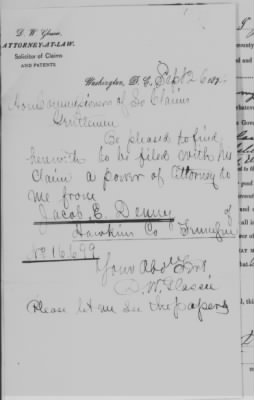 D. W. Glassie,
ATTORNEY-AT-LAW.
Solicitor of Claims
AND PATENTS
Washington, D. C., Sept 26 187
Hon Commissioners of So Claims
Gentlemen
Be pleased to find
herewith to be filed with his
Claim a power of attorney to
me from
Jacob. E. Denny of
Hawkins Co Tennessee
No 16,699
Your Obdt Svt
D. W. Glassie
Please let me see the papers